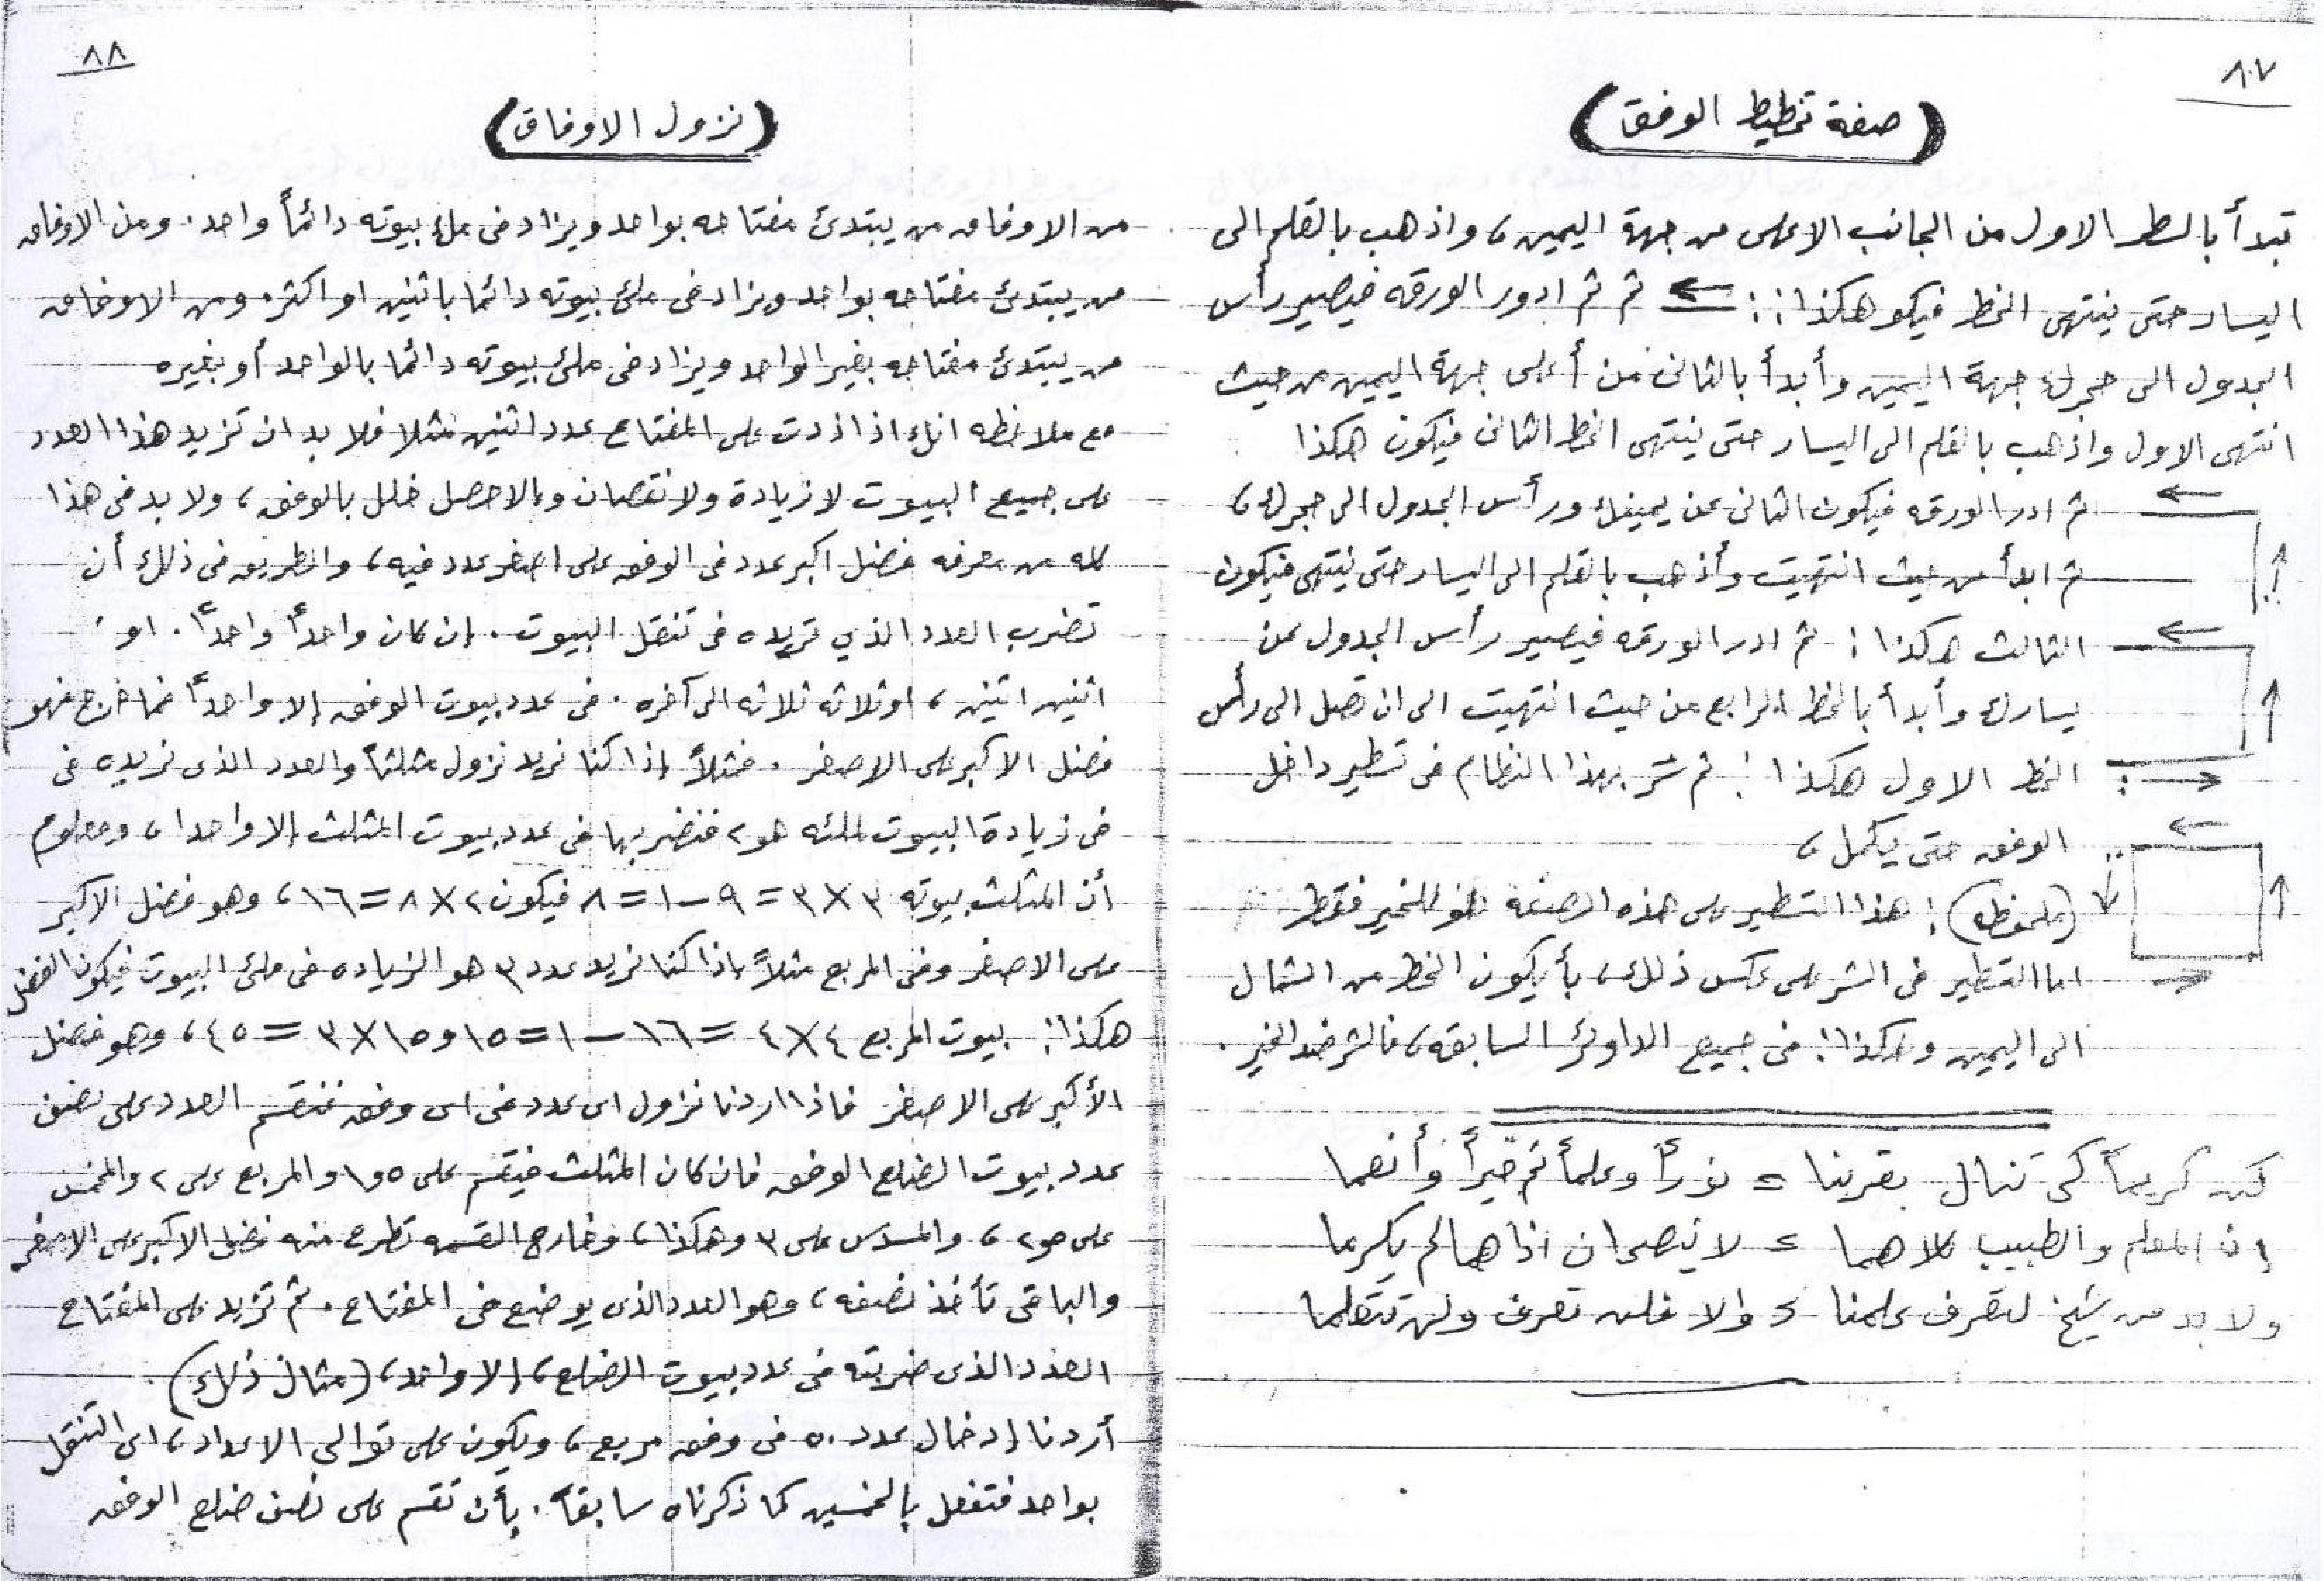 ٨٧
(صفة تخطيط الوفق)
تبدأ بالسطر الاول من الجانب الاعلى من جهة اليمين، واذهب بالقلم الى
اليسار حتى ينتهى الخط فيكو هكذا :: ثم ثم ادور الورقه فيصير رأس
الجدول الى حجرك جهة اليمين وأبدأ بالثانى من أعلى جهة اليمين من حيث
انتهى الاول واذهب بالقلم الى اليسار حتى ينتهى الخط الثانى فيكون هكذا
ثم ادر الورقه فيكون الثانى عن يمينك ورأس الجدول الى حجرك،
ثم ابدأ من حيث انتهيت وأذهب بالقلم الى اليسار حتى ينتهى فيكون
الثالث هكذا : ثم ادر الورقه فيصير رأس الجدول عن
يسارك وأبدأ بالخط الرابع من حيث انتهيت الى ان تصل الى رأس
الخط الاول هكذا : ثم بهذا النظام فى تسطير داخل
الوفق حتى يكمل،
(ملحوظه) : هذا التسطير على هذه الصفه للخير فقط
اما التسطير فى الشر على عكس ذلك، بأ يكون الخط من الشمال
الى اليمين وهكذا : فى جميع الداوئر السابقه، فالشر ضد الخير .
كن كريماً كى تنال بقربنا = نوراً وعلماً ثم خيراً وأنعما
إن المعلم والطبيب كلاهما = لا ينصحان اذا هما لم يكرما
ولا بد من شيخ لتعرف علمنا = والا فلن تعرف ولن تتعلما
٨٨
(نزول الاوفاق)
من الاوفاق من يبتدئ مفتاحه بواحد ويزاد فى ملئ بيوته دائماً واحد . ومن الاوفاق
من يبتدئ مفتاحه بواحد ويزاد فى ملئ بيوته دائما باثنين او اكثر . ومن الاوفاق
من يبتدئ مفتاحه بغير الواحد ويزاد فى ملئ بيوته دائما بالواحد أو بغيره
مع ملاحظه انك اذا زدت على المفتاح عدد اثنين مثلا فلا بد ان تزيد هذا العدد
على جميع البيوت لا زيادة ولا نقصان والا حصل خلل بالوفق، ولا بد فى هذا
كله من معرفه فضل اكبر عدد فى الوفق على اصغر عدد فيه، والطريق فى ذلك أن
تضرب العدد الذي تريده فى تنقل البيوت . إن كان واحداً واحداً . او
اثنين اثنين، او ثلاثه ثلاثه الى آخره . فى عدد بيوت الوفق إلا واحداً فما خرج فهو
فضل الاكبر على الاصغر . فمثلاً إذا كنا نريد نزول مثلثاً والعدد الذى نريده فى
فى زيادة البيوت لملئه هو ٢ فنضربها فى عدد بيوت المثلث إلا واحدا، ومعلوم
أن المثلث بيوته ٣ × ٣ = ٩ – ١ = ٨ فيكون ٢ × ٨ = ١٦، وهو فضل الاكبر
على الاصغر وفى المربع مثلاً إذا كنا نريد عدد ٣ هو الزياده فى ملئ البيوت فيكون الفضل
هكذا : بيوت المربع ٤ × ٤ = ١٦ – ١ = ١٥ و ١٥ × ٣ = ٤٥، وهو فضل
الأكبر على الاصغر فاذا اردنا نزول اى عدد فى اى وفق فنقسم العدد على نصف
عدد بيوت الضلع الوفق فان كان المثلث فيقسم على ١٫٥ والمربع على ٢ والمخمس
على ٢٫٥، والمسدس على ٣ وهكذا، وخارج القسمه تطرح منه فضل الاكبر على الاصغر
والباقى تأخذ نصفه، وهو العدد الذى يوضع فى المفتاح . ثم تزيد على المفتاح
العدد الذى ضربته فى عدد بيوت الضلع، إلا واحد، (مثال ذلك) .
أردنا إدخال عدد ٥٠ فى وفق مربع، ويكون على توالى الاعداد، اى التنقل
بواحد فتفعل بالخمسين كما ذكرناه سابقاً . بأن تقسم على نصف ضلع الوفق